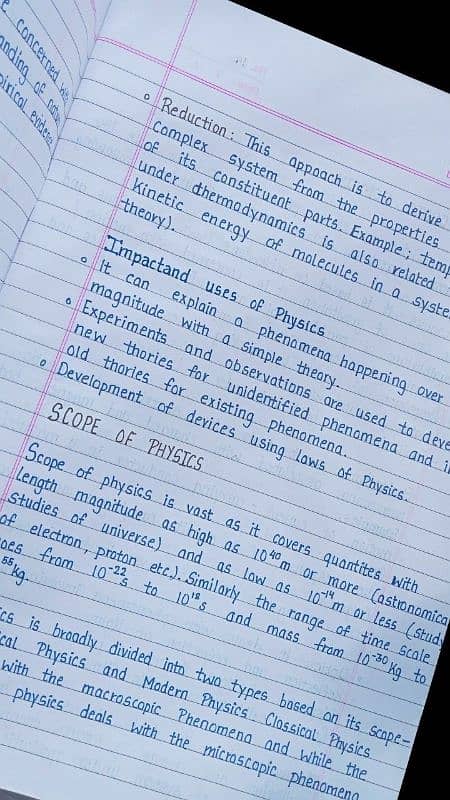 concerned
empirical eviden
Reduction: This appoach is to derive
Complex system from the properties
of its constituent parts. Example; temp
under dthermodynamics is also related
Kinetic energy of molecules in a syste
theory).
Impactand uses of Physics
It can explain a phenomena happening over
magnitude with a simple theory.
Experiments and observations are used to deve
new thories for unidentified phenomena and i
old thories for existing phenomena.
Development of devices using laws of Physics.
SCOPE OF PHYSICS
Scope of physics is vast as it covers quantites with
length magnitude as high as 10⁴⁰m or more (astionomica
studies of universe) and as low as 10⁻¹⁴m or less (stud
of electron, proton etc.). Similarly the range of time scale
oes from 10⁻²²s to 10¹⁸s and mass from 10⁻³⁰kg to
⁵⁵kg.
ics is broadly divided into two types based on its scope-
cal Physics and Modern Physics. Classical Physics
with the macroscopic Phenomena and while the
physics deals with the microscopic phenomena